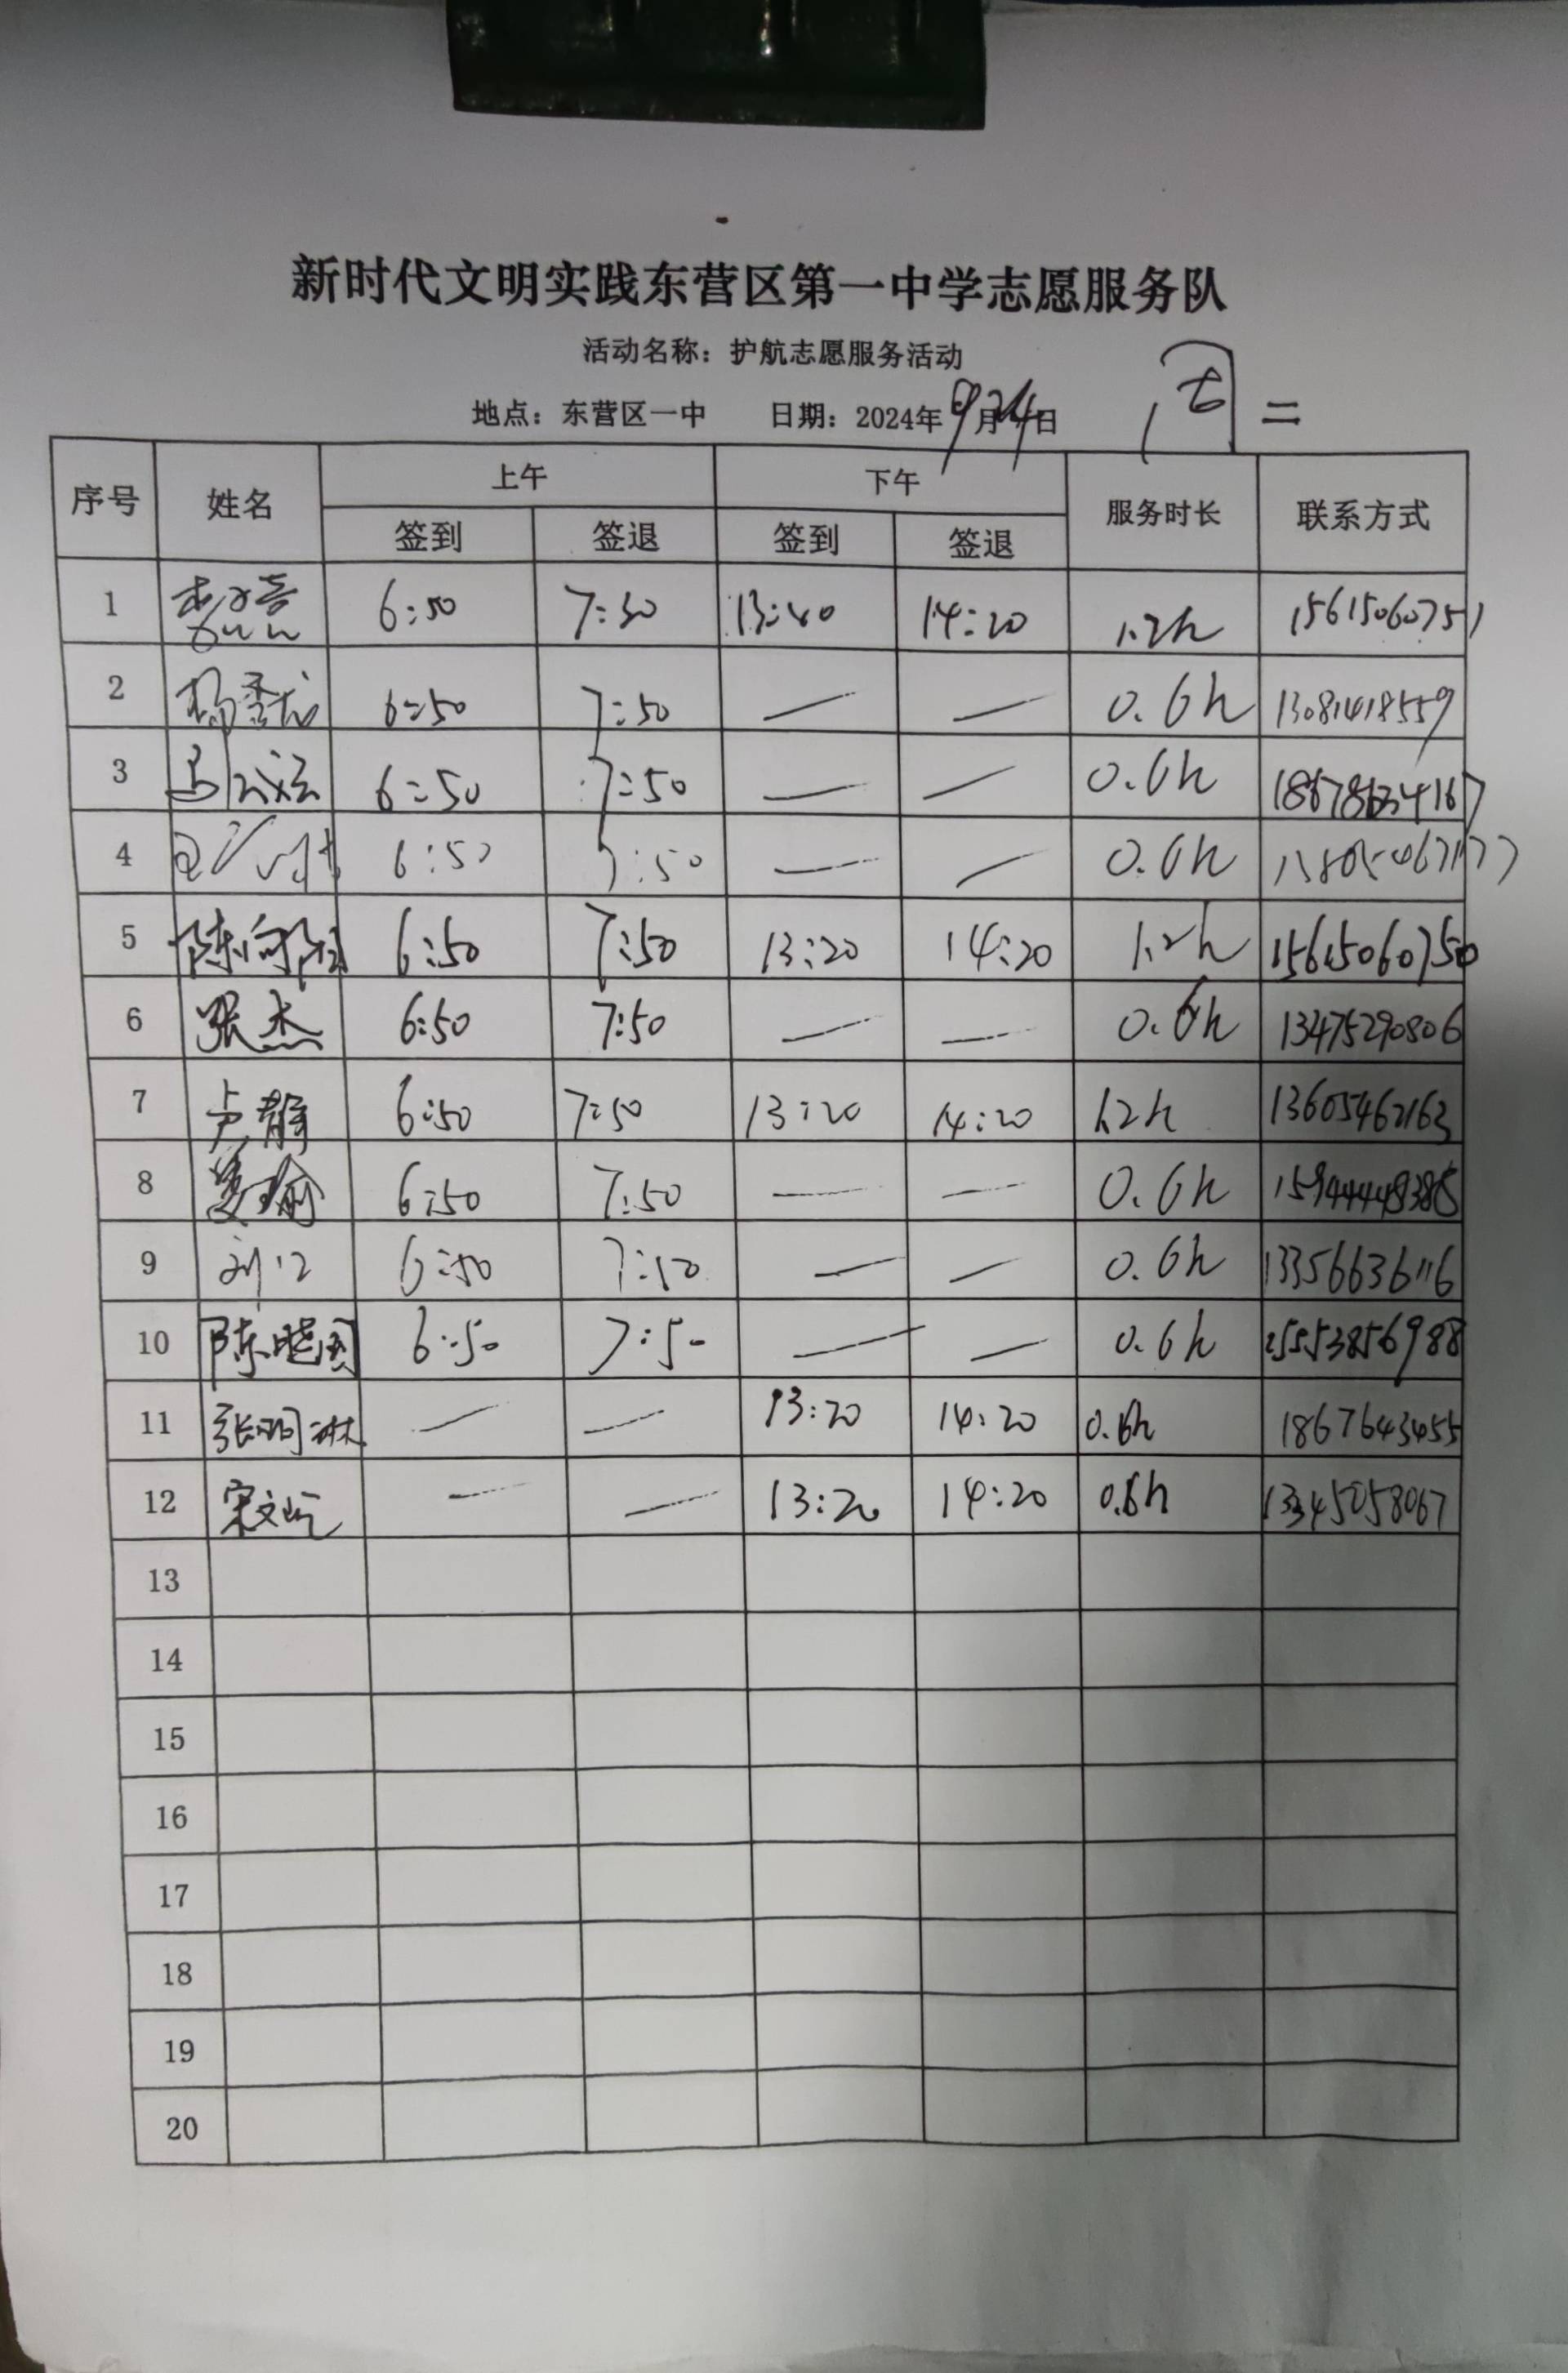 新时代文明实践东营区第一中学志愿服务队
活动名称：护航志愿服务活动
地点：东营区一中 日期：2024年9月24日 周二
序号 姓名 上午 下午 服务时长 联系方式
签到 签退 签到 签退
1 6:50 7:30 13:40 14:20 1.2h 15615060751
2 杨秀龙 6:50 7:50 — — 0.6h 13081418559
3 6:50 7:50 — — 0.6h 18678634167
4 6:50 7:50 — — 0.6h
5 陈向阳 6:50 7:50 13:20 14:20 1.2h 15615060750
6 张杰 6:50 7:50 — — 0.6h 13475290806
7 卢静 6:50 7:50 13:20 14:20 1.2h 13605462163
8 6:50 7:50 — — 0.6h
9 6:50 7:50 — — 0.6h 13356636116
10 陈晓国 6:50 7:50 — — 0.6h
11 — — 13:20 14:20 0.6h 1867643455
12 宋文屹 — — 13:20 14:20 0.6h 13345058067
13
14
15
16
17
18
19
20